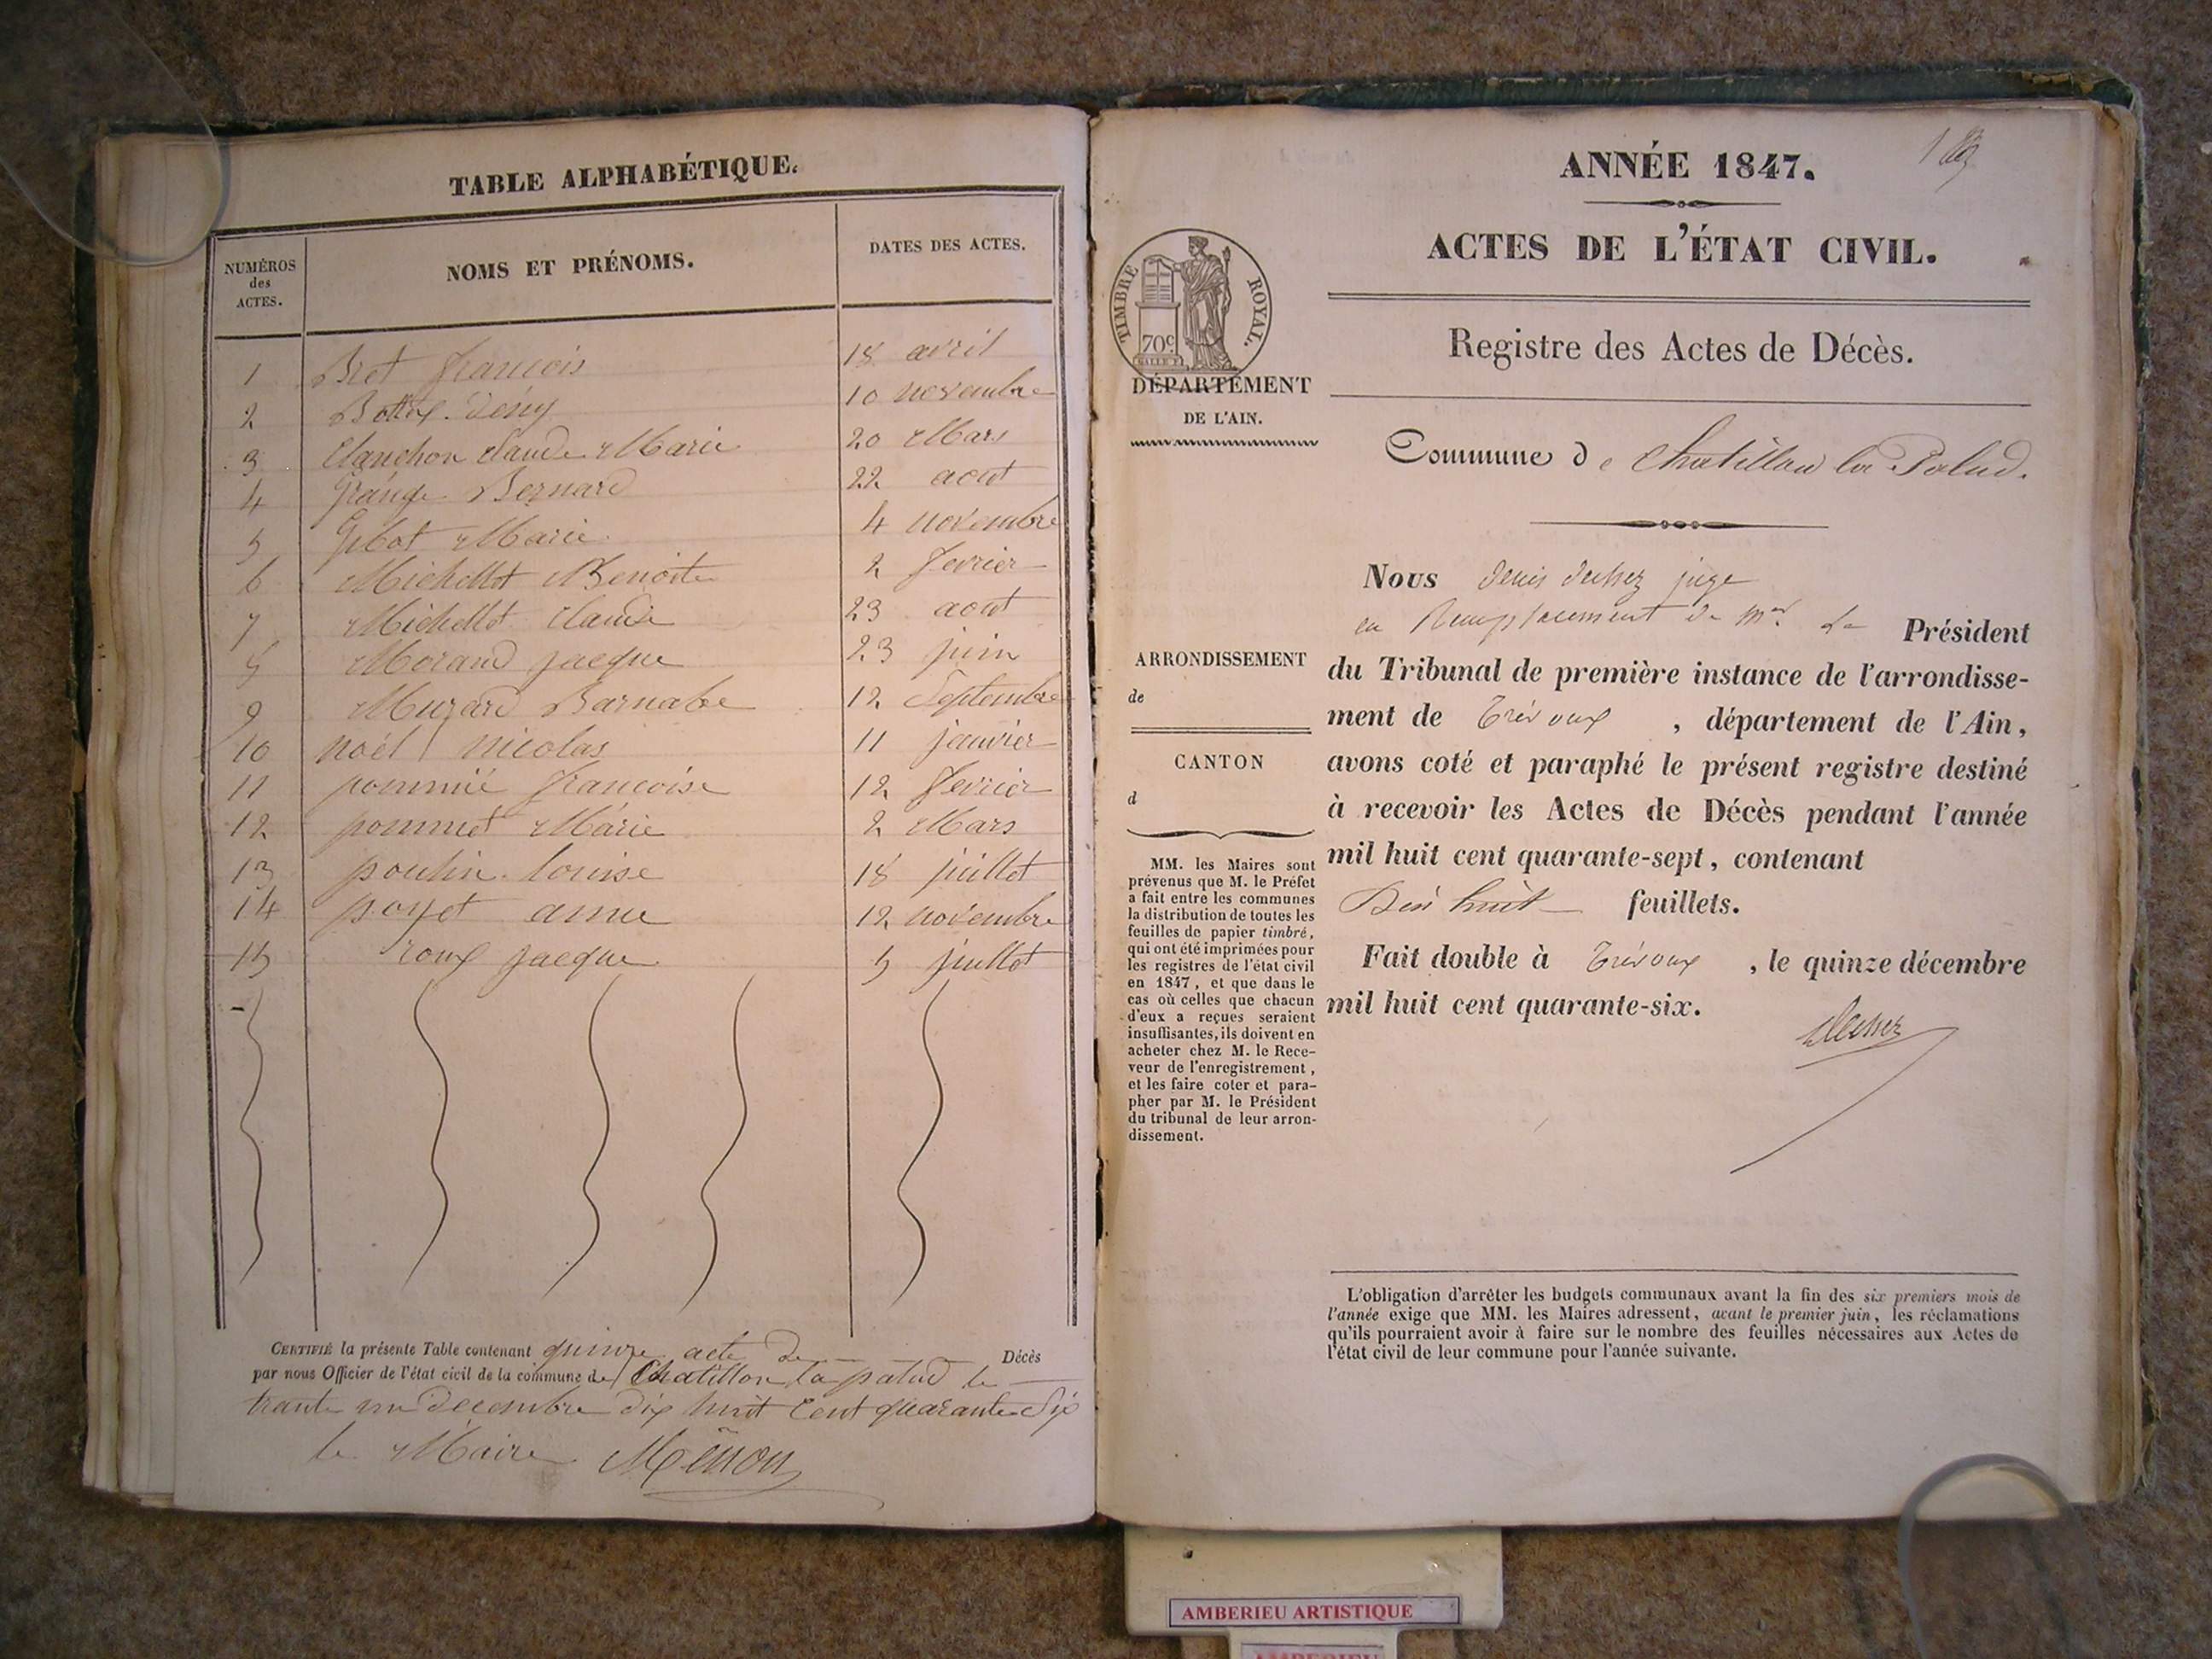 TABLE ALPHABÉTIQUE.
NUMÉROS des ACTES.
NOMS ET PRÉNOMS.
DATES DES ACTES.
1 Bret françois 18 avril
2 10 novembre
3 Clanchon claude Marie 20 Mars
4 Grange Bernard 22 aout
5 Marie 4 novembre
6 Michellot Benoite 2 fevrier
7 Michellot Claude 23 aout
8 Morand jacque 23 juin
9 Muzard Barnabe 12 Septembre
10 noël nicolas 11 janvier
11 pommié francoise 12 fevrier
12 pommet Marie 2 Mars
13 poulin louise 18 juillet
14 poyet anne 12 novembre
15 roux jacque 5 juillet
CERTIFIÉ la présente Table contenant quinze acte de Décès
par nous Officier de l'état civil de la commune de Chatillon la palud le
trante un decembre dix huit Cent quarante Six
le Maire
ANNÉE 1847.
ACTES DE L'ÉTAT CIVIL.
Registre des Actes de Décès.
TIMBRE ROYAL.
70c
DÉPARTEMENT
DE L'AIN.
Commune de Chatillon la Palud.
Nous denis juge
en Remplacement de Mr le Président
du Tribunal de première instance de l'arrondisse-
ment de Trévoux , département de l'Ain,
avons coté et paraphé le présent registre destiné
à recevoir les Actes de Décès pendant l'année
mil huit cent quarante-sept, contenant
Dix huit feuillets.
Fait double à Trévoux , le quinze décembre
mil huit cent quarante-six.
ARRONDISSEMENT
de
CANTON
d
MM. les Maires sont
prévenus que M. le Préfet
a fait entre les communes
la distribution de toutes les
feuilles de papier timbré,
qui ont été imprimées pour
les registres de l'état civil
en 1847, et que dans le
cas où celles que chacun
d'eux a reçues seraient
insuffisantes, ils doivent en
acheter chez M. le Rece-
veur de l'enregistrement,
et les faire coter et para-
pher par M. le Président
du tribunal de leur arron-
dissement.
L'obligation d'arrêter les budgets communaux avant la fin des six premiers mois de
l'année exige que MM. les Maires adressent, avant le premier juin, les réclamations
qu'ils pourraient avoir à faire sur le nombre des feuilles nécessaires aux Actes de
l'état civil de leur commune pour l'année suivante.
AMBERIEU ARTISTIQUE
AMBERIEU